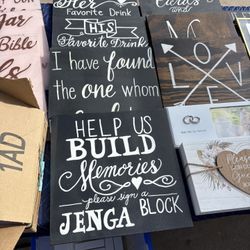 Her
Favorite Drink
HIS
Favorite Drink
I have found
the one whom
HELP US
BUILD
Memories
please sign a
JENGA BLOCK
Jar
Bible
Cards
and
L O V E
JAD
Please